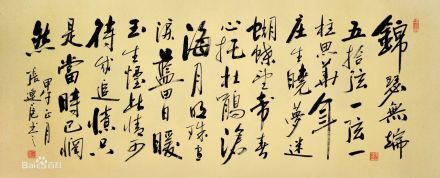 錦瑟無端
五拾弦一弦一
柱思華年
庄生曉夢迷
蝴蝶望帝春
心托杜鵑滄
海月明珠有
淚藍田日暖
玉生煙此情可
待成追憶只
是當時已惘
然
甲午正月
Bai百科